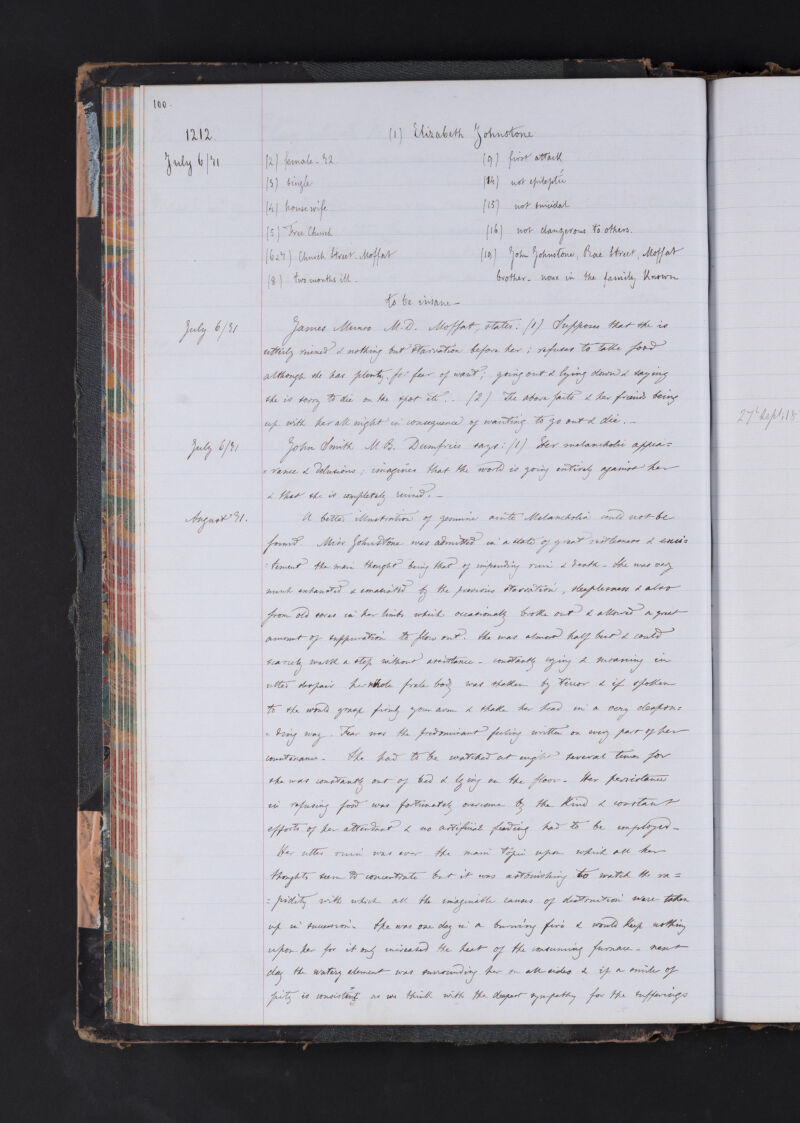 100.
1212. (1) Elizabeth Johnstone
July 6/71
(2) female - 42 (9) first attack
(3) single (14) not epileptic
(4) housewife (15) not suicidal
(5) Free Church (16) not dangerous to others.
(6 & 7) Church Street. Moffat (19) John Johnstone, Rae Street, Moffat
(8) two months ill - brother - none in the family known
to be insane -
July 6/71 James Munro M.D. Moffat, states: (1) Supposes that she is
utterly ruined & nothing but starvation before her; refuses to take food
although she has plenty, for fear of want; going out & lying down & saying
she is sorry to die on the spot etc. - (2) The above facts & her friends being
up with her all night in consequence of wanting to go out & die. -
July 6/71 John Smith M.B. Dumfries says: (1) Her melancholic appea=
=rance & delusions; imagines that the world is going entirely against her
& that she is completely ruined. -
August 71. A better illustration of genuine acute Melancholia could not be
found. Miss Johnstone was admitted in a state of great restlessness & exci=
=tement the main thought being that of impending ruin & death - She was very
much exhausted & emaciated by the previous starvation, sleeplessness & also
from old sores in her limbs which occasionally broke out & allowed a great
amount of suppuration to flow out. She was almost half bent & could
scarcely walk a step without assistance - constantly crying & moaning in
utter despair her whole frale body was shaken by terror & if spoken
to she would grasp firmly your arm & shake her head in a very despon=
=ding way. Fear was the predominant feeling written on every part of her
countenance - She had to be watched at night several times for
she was constantly out of bed & lying on the floor - Her persistance
in refusing food was fortunately overcome by the kind & constant
efforts of her attendant & no artificial feeding had to be employed -
Her utter ruin was ever the main topic upon which all her
thoughts seem to concentrate but it was astonishing to watch the ra=
=pidity with which all the imaginable causes of destruction were taken
up in succession. She was one day in a burning fire & would keep nothing
upon her for it only increased the heat of the consuming furnace - next
day the watery element was surrounding her on all sides & if a smile of
pity is consistent as we think with the deepest sympathy for the sufferings
27th Sept. 18